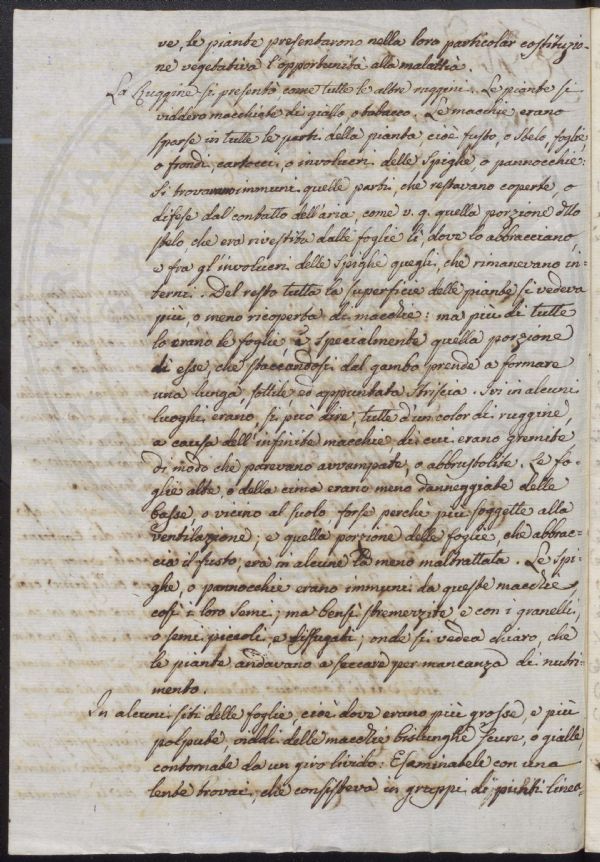 ve, le piante presentarono nella loro particolar costituzio-
ne vegetativa l'opportunità alla malattia.
La Ruggine si presentò come tutte le altre ruggini. Le piante si
viddero macchiate di giallo, o tabacco. Le macchie erano
sparse in tutte le parti della pianta, cioè fusto, o stelo, foglie,
o frondi, cartocci, o involucri delle spighe, o pannocchie:
si trovarono immuni quelle parti, che restavano coperte, o
difese dal contatto dell'aria, come v. g. quella porzione dllo
stelo che era rivestita dalle foglie lì, dove lo abbracciano,
e fra gl'involucri delle spighe quegli, che rimanevano in-
terni. Del resto tutta la superficie delle piante si vedeva
più, o meno ricoperta di macchie: ma più di tutte
lo erano le foglie, e specialmente quella porzione
di esse, che staccandosi dal gambo prende a formare
una lunga, sottile ed appuntata striscia. Ivi in alcuni
luoghi erano, si può dire, tutte d'un color di ruggine,
a causa dell'infinite macchie, di cui erano gremite
di modo che parevano avvampate, o abbrustolite. Le fo-
glie alte, o della cima erano meno danneggiate delle
basse, o vicino al suolo, forse perchè più soggette alla
ventilazione; e quella porzione delle foglie, che abbrac-
cia il fusto, era in alcune la meno maltrattata. Le spi-
ghe, o pannocchie erano immuni da queste macchie,
così i loro semi; ma bensì stremenzite e con i granelli,
o semi piccoli, e diffugati; onde si vedea chiaro, che
le piante andavano a seccare per mancanza di nutri-
mento.
In alcuni siti delle foglie, cioè dove erano più grosse, e più
polpute, viddi delle macchie bislunghe scure, o gialle,
contornate da un giro livido: Esaminatele con una
lente trovai, che consisteva in gruppi di punti linea-